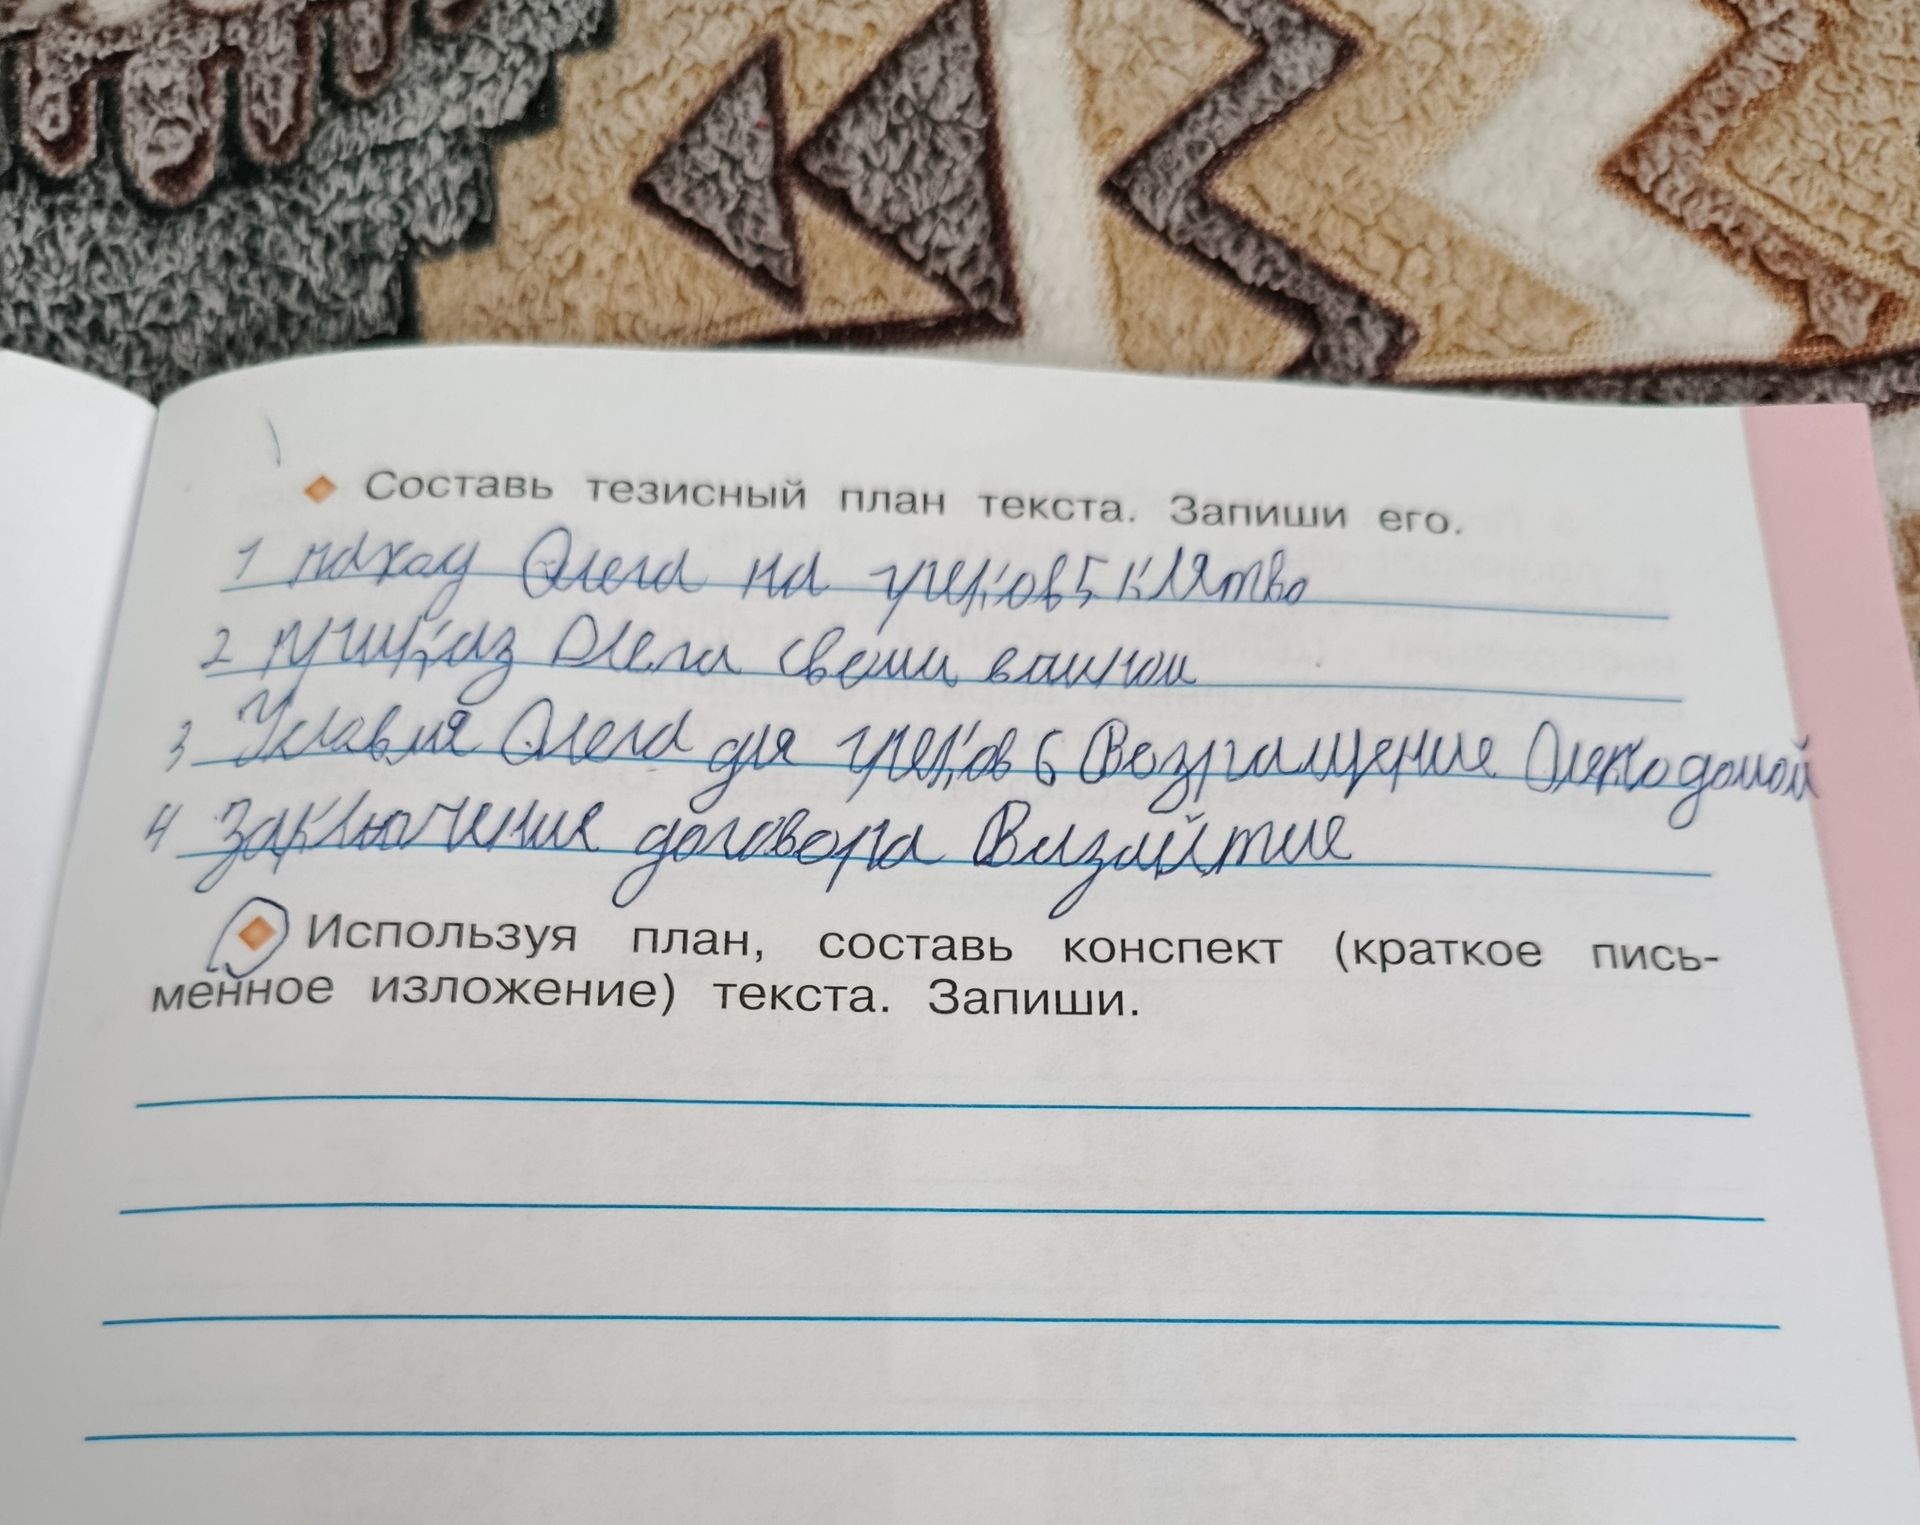 Составь тезисный план текста. Запиши его.
1 поход Олега на греков 5 клятво
2 приказ Олега своим воинам
3 Условия Олега для греков 6 Возращение Олега домой
4 Заключение договора Визайтие
Используя план, составь конспект (краткое пись-
менное изложение) текста. Запиши.